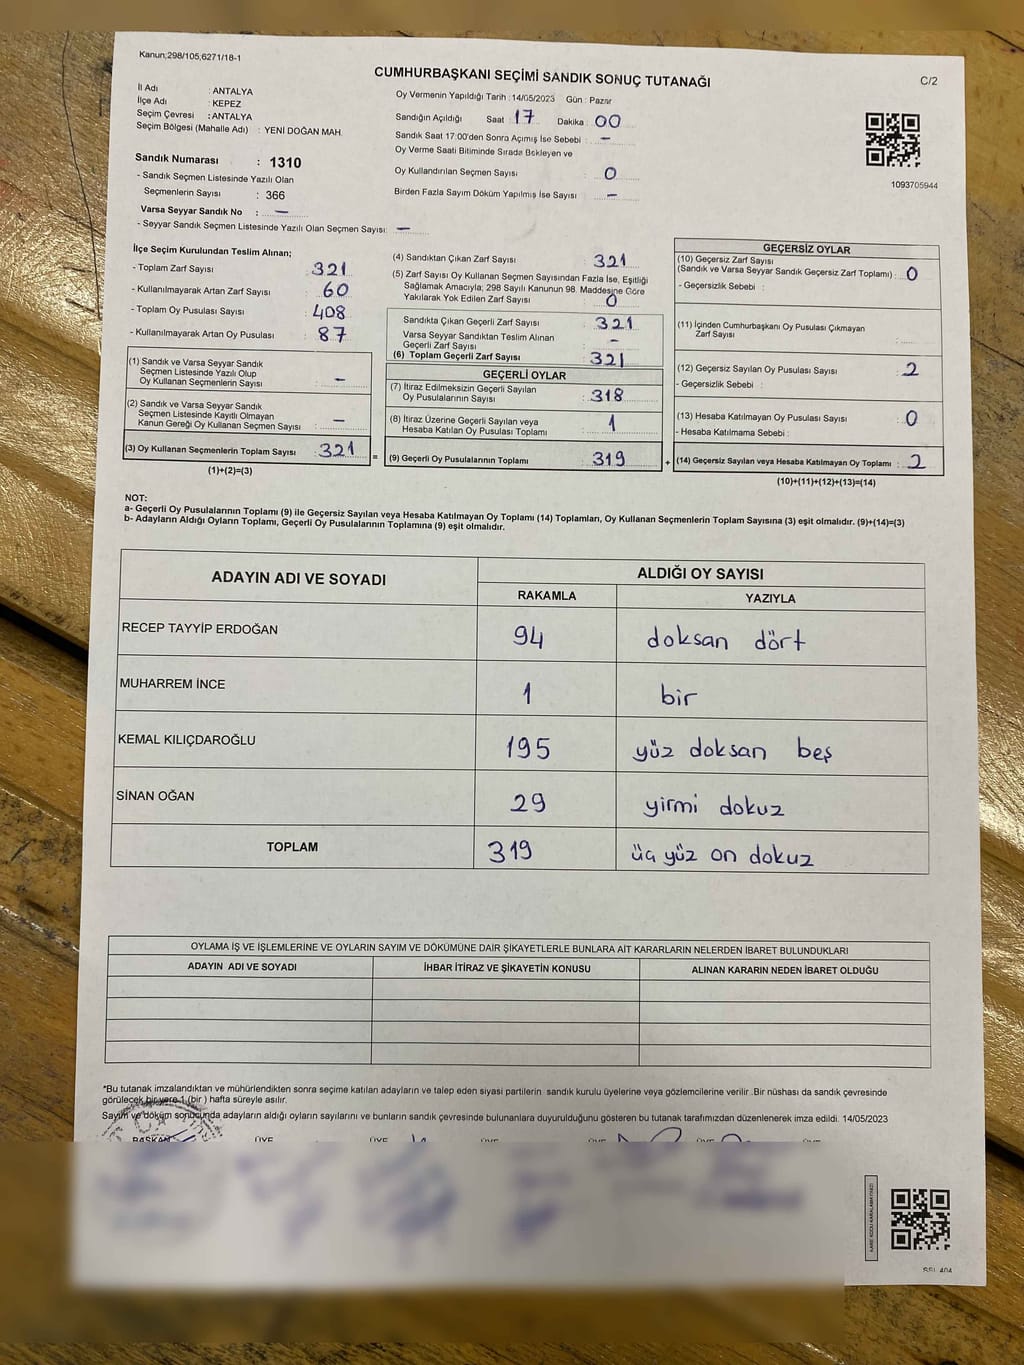 Kanun;298/105;6271/18-1
CUMHURBAŞKANI SEÇİMİ SANDIK SONUÇ TUTANAĞI
C/2
İl Adı : ANTALYA
İlçe Adı : KEPEZ
Seçim Çevresi : ANTALYA
Seçim Bölgesi (Mahalle Adı) : YENİ DOĞAN MAH.
Sandık Numarası : 1310
- Sandık Seçmen Listesinde Yazılı Olan
Seçmenlerin Sayısı : 366
Varsa Seyyar Sandık No : —
- Seyyar Sandık Seçmen Listesinde Yazılı Olan Seçmen Sayısı: —
Oy Vermenin Yapıldığı Tarih : 14/05/2023 Gün : Pazar
Sandığın Açıldığı Saat 17 Dakika 00
Sandık Saat 17:00'den Sonra Açımış İse Sebebi : —
Oy Verme Saati Bitiminde Sırada Bekleyen ve
Oy Kullandırılan Seçmen Sayısı : 0
Birden Fazla Sayım Döküm Yapılmış İse Sayısı : —
1093705944
İlçe Seçim Kurulundan Teslim Alınan;
- Toplam Zarf Sayısı : 321
- Kullanılmayarak Artan Zarf Sayısı : 60
- Toplam Oy Pusulası Sayısı : 408
- Kullanılmayarak Artan Oy Pusulası : 87
(1) Sandık ve Varsa Seyyar Sandık
Seçmen Listesinde Yazılı Olup
Oy Kullanan Seçmenlerin Sayısı : —
(2) Sandık ve Varsa Seyyar Sandık
Seçmen Listesinde Kayıtlı Olmayan
Kanun Gereği Oy Kullanan Seçmen Sayısı : —
(3) Oy Kullanan Seçmenlerin Toplam Sayısı : 321
(1)+(2)=(3)
(4) Sandıktan Çıkan Zarf Sayısı : 321
(5) Zarf Sayısı Oy Kullanan Seçmen Sayısından Fazla İse, Eşitliği
Sağlamak Amacıyla; 298 Sayılı Kanunun 98. Maddesine Göre
Yakılarak Yok Edilen Zarf Sayısı : 0
Sandıkta Çıkan Geçerli Zarf Sayısı : 321
Varsa Seyyar Sandıktan Teslim Alınan
Geçerli Zarf Sayısı : —
(6) Toplam Geçerli Zarf Sayısı : 321
GEÇERLİ OYLAR
(7) İtiraz Edilmeksizin Geçerli Sayılan
Oy Pusulalarının Sayısı : 318
(8) İtiraz Üzerine Geçerli Sayılan veya
Hesaba Katılan Oy Pusulası Toplamı : 1
= (9) Geçerli Oy Pusulalarının Toplamı : 319 +
GEÇERSİZ OYLAR
(10) Geçersiz Zarf Sayısı
(Sandık ve Varsa Seyyar Sandık Geçersiz Zarf Toplamı) : 0
- Geçersizlik Sebebi :
(11) İçinden Cumhurbaşkanı Oy Pusulası Çıkmayan
Zarf Sayısı :
(12) Geçersiz Sayılan Oy Pusulası Sayısı : 2
- Geçersizlik Sebebi :
(13) Hesaba Katılmayan Oy Pusulası Sayısı : 0
- Hesaba Katılmama Sebebi :
(14) Geçersiz Sayılan veya Hesaba Katılmayan Oy Toplamı : 2
(10)+(11)+(12)+(13)=(14)
NOT:
a- Geçerli Oy Pusulalarının Toplamı (9) ile Geçersiz Sayılan veya Hesaba Katılmayan Oy Toplamı (14) Toplamları, Oy Kullanan Seçmenlerin Toplam Sayısına (3) eşit olmalıdır. (9)+(14)=(3)
b- Adayların Aldığı Oyların Toplamı, Geçerli Oy Pusulalarının Toplamına (9) eşit olmalıdır.
ADAYIN ADI VE SOYADI
ALDIĞI OY SAYISI
RAKAMLA YAZIYLA
RECEP TAYYİP ERDOĞAN 94 doksan dört
MUHARREM İNCE 1 bir
KEMAL KILIÇDAROĞLU 195 yüz doksan beş
SİNAN OĞAN 29 yirmi dokuz
TOPLAM 319 üç yüz on dokuz
OYLAMA İŞ VE İŞLEMLERİNE VE OYLARIN SAYIM VE DÖKÜMÜNE DAİR ŞİKAYETLERLE BUNLARA AİT KARARLARIN NELERDEN İBARET BULUNDUKLARI
ADAYIN ADI VE SOYADI İHBAR İTİRAZ VE ŞİKAYETİN KONUSU ALINAN KARARIN NEDEN İBARET OLDUĞU
*Bu tutanak imzalandıktan ve mühürlendikten sonra seçime katılan adayların ve talep eden siyasi partilerin sandık kurulu üyelerine veya gözlemcilerine verilir .Bir nüshası da sandık çevresinde
görülecek bir yere 1 (bir ) hafta süreyle asılır.
Sayım ve döküm sonucunda adayların aldığı oyların sayılarını ve bunların sandık çevresinde bulunanlara duyurulduğunu gösteren bu tutanak tarafımızdan düzenlenerek imza edildi. 14/05/2023
BAŞKAN ÜYE ÜYE ÜYE ÜYE ÜYE ÜYE